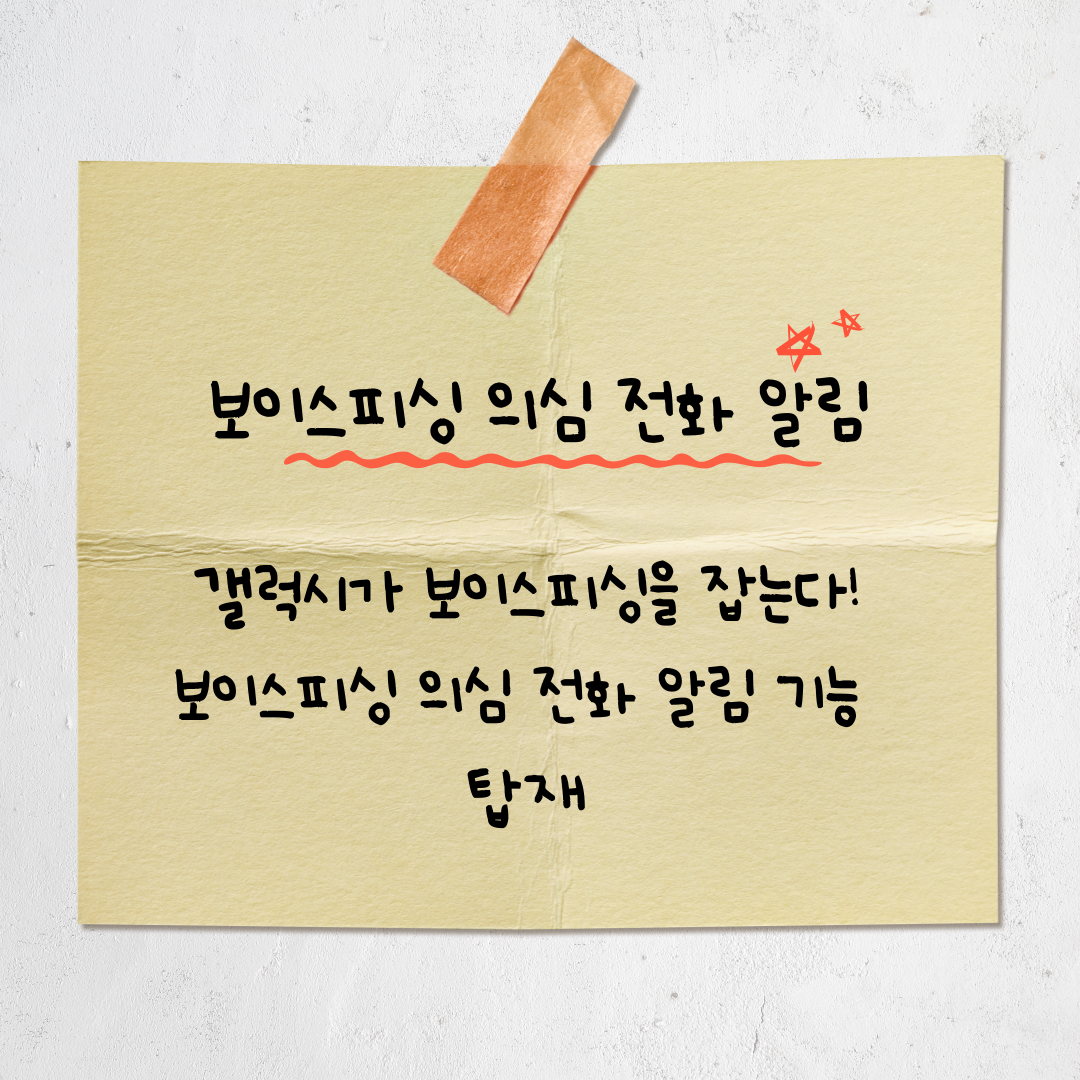 보이스피싱 의심 전화 알림
갤럭시가 보이스피싱을 잡는다!
보이스피싱 의심 전화 알림 기능
탑재